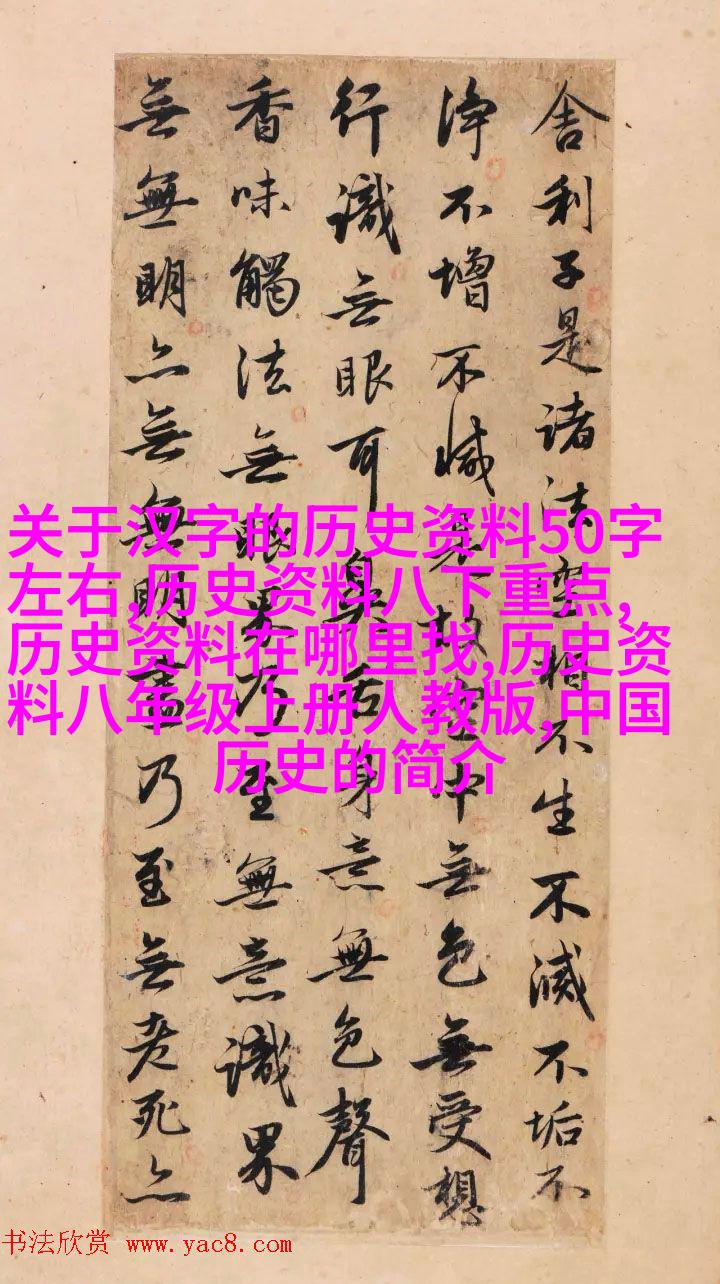 舍利子是諸法空相不生不滅不垢不
淨不增不減是故空中無色無受想
行識無眼耳鼻舌身意無色聲
香味觸法無眼界乃至無意識界
無無明亦無無明盡乃至無老死亦
关于汉字的历史资料50字
左右,历史资料八下重点,
历史资料在哪里找,历史资
料八年级上册人教版,中国
历史的简介
书法欣赏 www.yac8.com